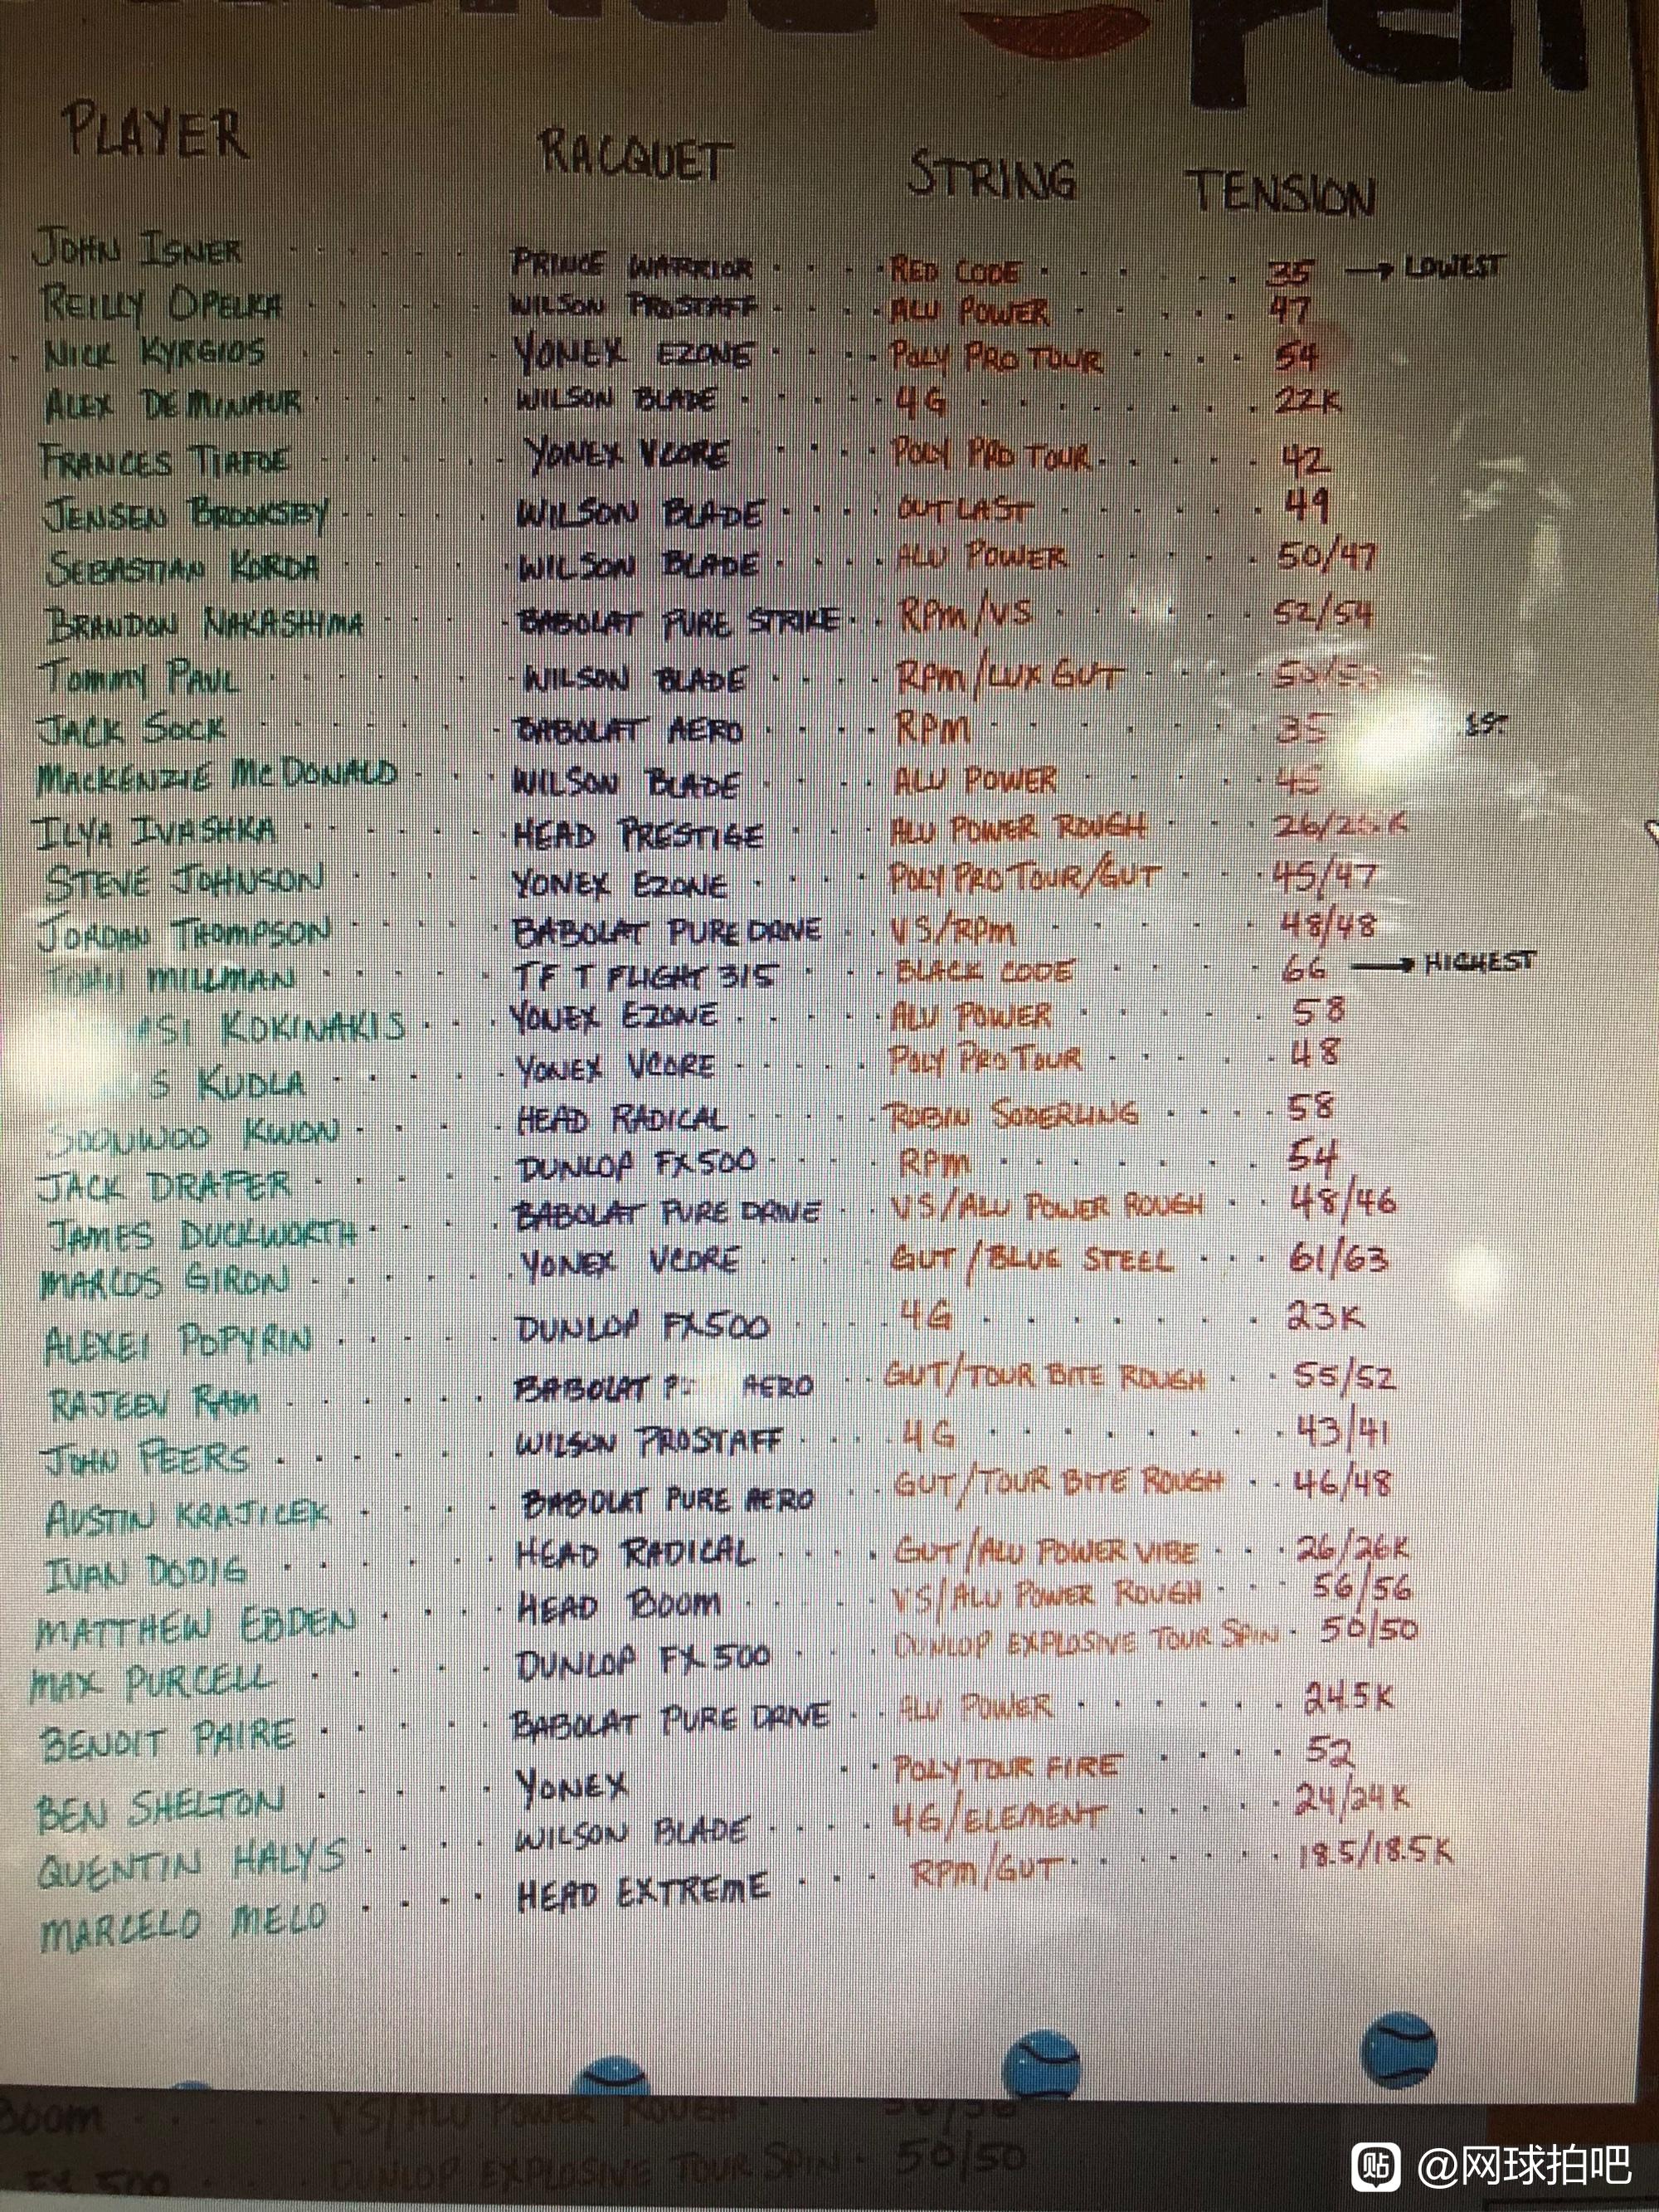 PLAYER RACQUET STRING TENSION
JOHN ISNER PRINCE WARRIOR RED CODE 35 → LOWEST
REILLY OPELKA WILSON PROSTAFF ALU POWER 47
NICK KYRGIOS YONEX EZONE POLY PRO TOUR 54
ALEX DE MINAUR WILSON BLADE 4G 22K
FRANCES TIAFOE YONEX VCORE POLY PRO TOUR 42
JENSEN BROOKSBY WILSON BLADE OUTLAST 49
SEBASTIAN KORDA WILSON BLADE ALU POWER 50/47
BRANDON NAKASHIMA BABOLAT PURE STRIKE RPM/VS 52/54
TOMMY PAUL WILSON BLADE RPM/LUX GUT
JACK SOCK BABOLAT AERO RPM 35
MACKENZIE McDONALD WILSON BLADE ALU POWER
ILYA IVASHKA HEAD PRESTIGE ALU POWER ROUGH
STEVE JOHNSON YONEX EZONE POLY PRO TOUR/GUT 45/47
JORDAN THOMPSON BABOLAT PURE DRIVE VS/RPM 48/48
MILLMAN TF T FLIGHT 315 BLACK CODE 66 → HIGHEST
SI KOKINAKIS YONEX EZONE ALU POWER 58
S KUDLA YONEX VCORE POLY PRO TOUR 48
SOONWOO KWON HEAD RADICAL ROBIN SODERLING 58
JACK DRAPER DUNLOP FX500 RPM 54
JAMES DUCKWORTH BABOLAT PURE DRIVE VS/ALU POWER ROUGH 48/46
MARCOS GIRON YONEX VCORE GUT/BLUE STEEL 61/63
ALEXEI POPYRIN DUNLOP FX500 4G 23K
RAJEEV RAM BABOLAT AERO GUT/TOUR BITE ROUGH 55/52
JOHN PEERS WILSON PROSTAFF 4G 43/41
AUSTIN KRAJICEK BABOLAT PURE AERO GUT/TOUR BITE ROUGH 46/48
IVAN DODIG HEAD RADICAL GUT/ALU POWER VIBE 26/26K
MATTHEW EBDEN HEAD BOOM VS/ALU POWER ROUGH 56/56
MAX PURCELL DUNLOP FX500 DUNLOP EXPLOSIVE TOUR SPIN 50/50
BENOIT PAIRE BABOLAT PURE DRIVE ALU POWER 24.5K
BEN SHELTON YONEX POLYTOUR FIRE 52
QUENTIN HALYS WILSON BLADE 4G/ELEMENT 24/24K
MARCELO MELO HEAD EXTREME RPM/GUT 18.5/18.5K
BOOM VS/ALU POWER ROUGH 56/56
FX 500 DUNLOP EXPLOSIVE TOUR SPIN 50/50
贴 @网球拍吧